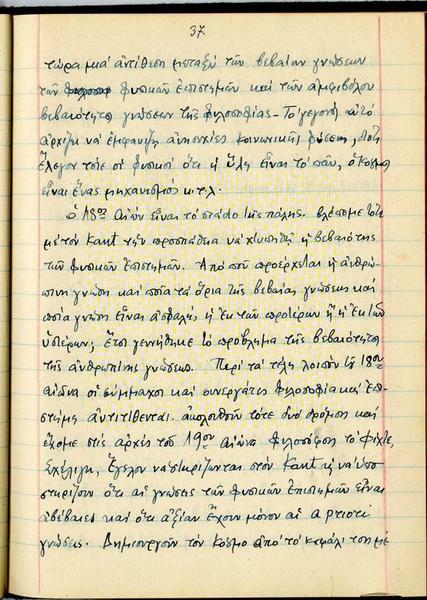 37
τώρα μιά ἀντίθεση μεταξύ τῶν βεβαίων γνώσεων
τῶν φυσικῶν ἐπιστημῶν καί τῶν ἀμφιβόλου
βεβαιότητος γνώσεων τῆς φιλοσοφίας - Τό γεγονός αὐτό
ἀρχίζει νά ἐμφανίζῃ ἀνησυχίες κοινωνικῆς φύσεως, διότι
ἔλεγον τότε οἱ φυσικοί ὅτι ἡ ὕλη εἶναι τό πᾶν, ὁ κόσμος
εἶναι ἕνας μηχανισμός κ.τ.λ.
Ὁ 18ος αἰών εἶναι τό στάδιο τῆς πάλης. Βλέπομε τότε
μέ τόν Kant τήν προσπάθεια νά χτυπηθῇ ἡ βεβαιότης
τῶν φυσικῶν ἐπιστημῶν. Ἀπό ποῦ προέρχεται ἡ ἀνθρω-
πινη γνώση καί ποῖα τά ὅρια τῆς βεβαίας γνώσεως καί
ποία γνώση εἶναι ἀσφαλής, ἡ ἐκ τῶν προτέρων ἤ ἡ ἐκ τῶν
ὑστέρων; ἔτσι γεννήθηκε τό πρόβλημα τῆς βεβαιότητος
τῆς ἀνθρωπίνης γνώσεως. Περί τά τέλη λοιπόν τοῦ 18ου
αἰῶνα οἱ σύμμαχοι καί συνεργάτες φιλοσοφία καί ἐπι-
στήμη ἀντιτίθενται. ἀκολουθοῦν τότε δυό δρόμοι καί
ἔχομε στίς ἀρχές τοῦ 19ου αἰῶνα φιλοσόφους τό Φίχτε,
Σχέλιγκ, Ἔγελον νά στηρίζωνται στόν Kant ἤ νά ὑπο
στηρίζουν ὅτι αἱ γνώσεις τῶν φυσικῶν ἐπιστημῶν εἶναι
ἀβέβαιες καί ὅτι ἀξίαν ἔχουν μόνον αἱ apriori
γνώσεις. Δημιουργοῦν τόν κόσμο ἀπό τό κεφάλι των μέ